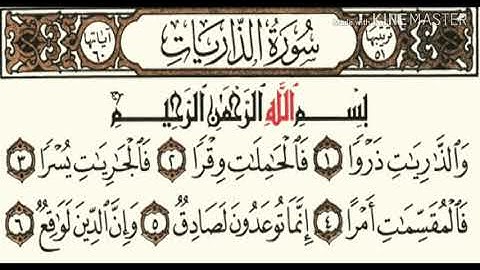 Made with KINEMASTER
ترتيبها ٥١ سُورَةُ الذَّارِيَاتِ آياتها ٦٠
بِسْمِ ٱللَّهِ ٱلرَّحْمَٰنِ ٱلرَّحِيمِ
وَٱلذَّٰرِيَٰتِ ذَرْوًا ١ فَٱلْحَٰمِلَٰتِ وِقْرًا ٢ فَٱلْجَٰرِيَٰتِ يُسْرًا ٣
فَٱلْمُقَسِّمَٰتِ أَمْرًا ٤ إِنَّمَا تُوعَدُونَ لَصَادِقٌ ٥ وَإِنَّ ٱلدِّينَ لَوَٰقِعٌ ٦